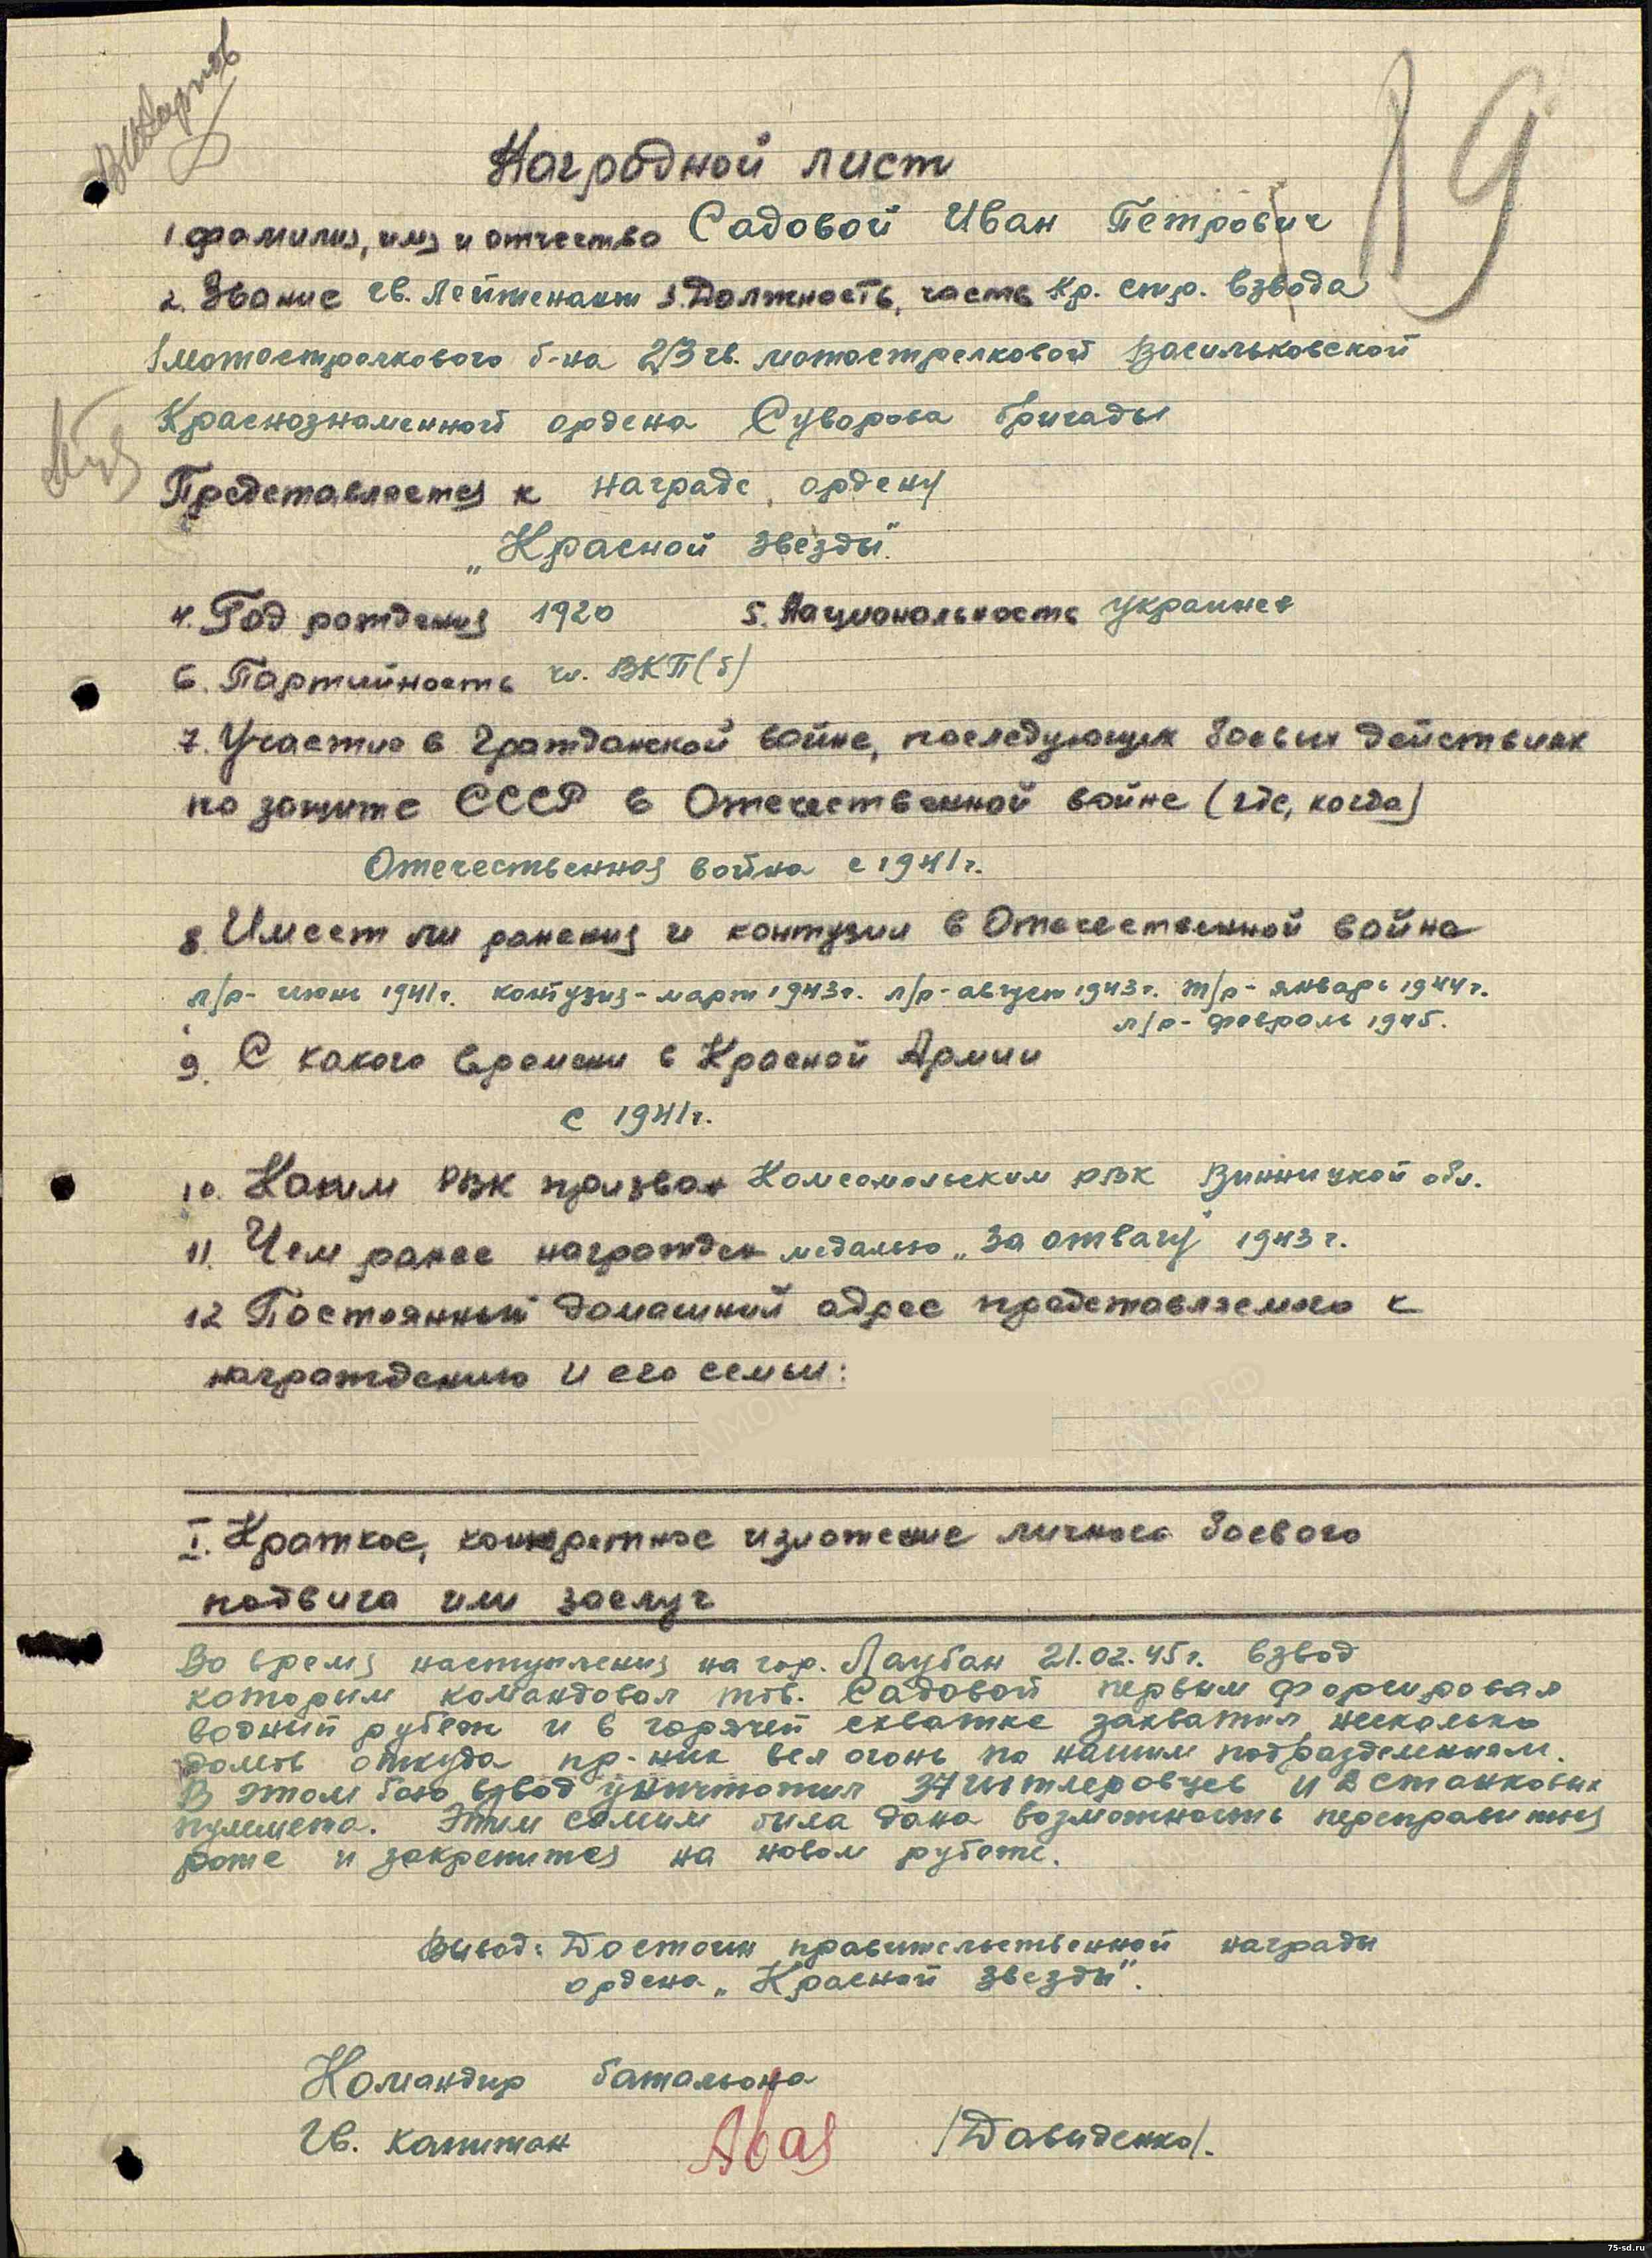 19
Наградной лист
1. фамилия, имя и отчество Садовой Иван Петрович
2. Звание гв. Лейтенант 3. Должность, часть Кр. стр. взвода
1 мотострелкового б-на 23 гв. мотострелковой Васильковской
Краснознаменной ордена Суворова бригады
Представляется к награде, ордену
„Красной звезды"
4. Год рождения 1920 5. Национальность украинец
6. Партийность чл. ВКП(б)
7. Участие в Гражданской войне, последующих боевых действиях
по защите СССР в Отечественной войне (где, когда)
Отечественная война с 1941 г.
8. Имеет ли ранения и контузии в Отечественной война
л/р- июнь 1941г. контузия-март 1943г. л/р-август 1943г. т/р- январь 1944г.
л/р- февраль 1945.
9. С какого времени в Красной Армии
с 1941г.
10. Каким РВК призван Комсомольским РВК Винницкой обл.
11. Чем ранее награжден медалью „За отвагу" 1943 г.
12 Постоянный домашний адрес представляемого к
награждению и его семьи:
I. Краткое, конкретное изложение личного боевого
подвига или заслуг
Во время наступления на гор. Лаубан 21.02.45г. взвод
которым командовал тов. Садовой первым форсировал
водный рубеж и в горячей схватке захватил несколько
домов откуда пр-ник вел огонь по нашим подразделениям.
В этом бою взвод уничтожил 37 гитлеровцев и 2 станковых
пулемета. Этим самым была дана возможность переправится
роте и закрепится на новом рубеже.
Вывод: Достоин правительственной награды
ордена „Красной звезды".
Командир батальона
Гв. капитан /Давиденко/.
75-sd.ru